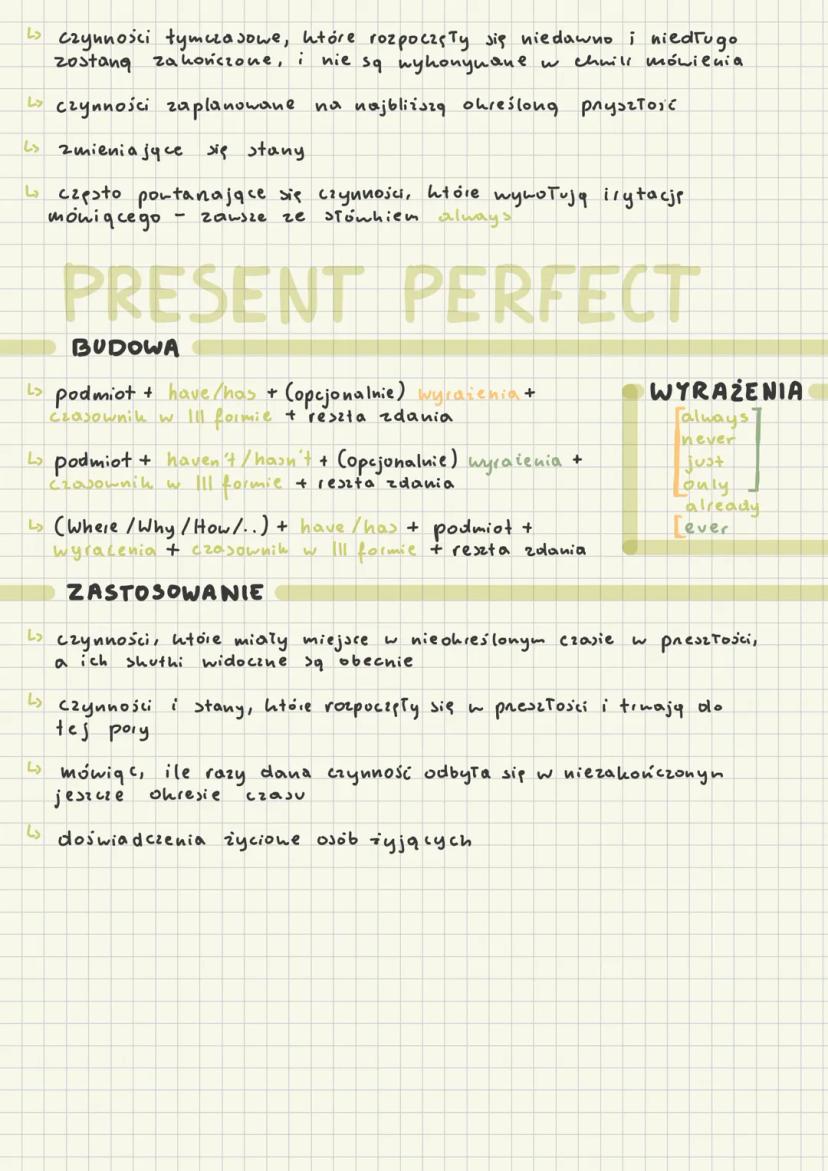 ↳ czynności tymczasowe, które rozpoczęły się niedawno i niedługo
zostaną zakończone, i nie są wykonywane w chwili mówienia
↳ czynności zaplanowane na najbliższą określoną przyszłość
↳ zmieniające się stany
↳ często powtarzające się czynności, które wywołują irytację
mówiącego - zawsze ze słówkiem always
PRESENT PERFECT
BUDOWA
↳ podmiot + have/has + (opcjonalnie) wyrażenia +
czasownik w III formie + reszta zdania
↳ podmiot + haven't/hasn't + (opcjonalnie) wyrażenia +
czasownik w III formie + reszta zdania
↳ (Where/Why/How/..) + have/has + podmiot +
wyrażenia + czasownik w III formie + reszta zdania
WYRAŻENIA
always
never
just
only
already
ever
ZASTOSOWANIE
↳ czynności, które miały miejsce w nieokreślonym czasie w przeszłości,
a ich skutki widoczne są obecnie
↳ czynności i stany, które rozpoczęły się w przeszłości i trwają do
tej pory
↳ mówiąc, ile razy dana czynność odbyła się w niezakończonym
jeszcze okresie czasu
↳ doświadczenia życiowe osób żyjących